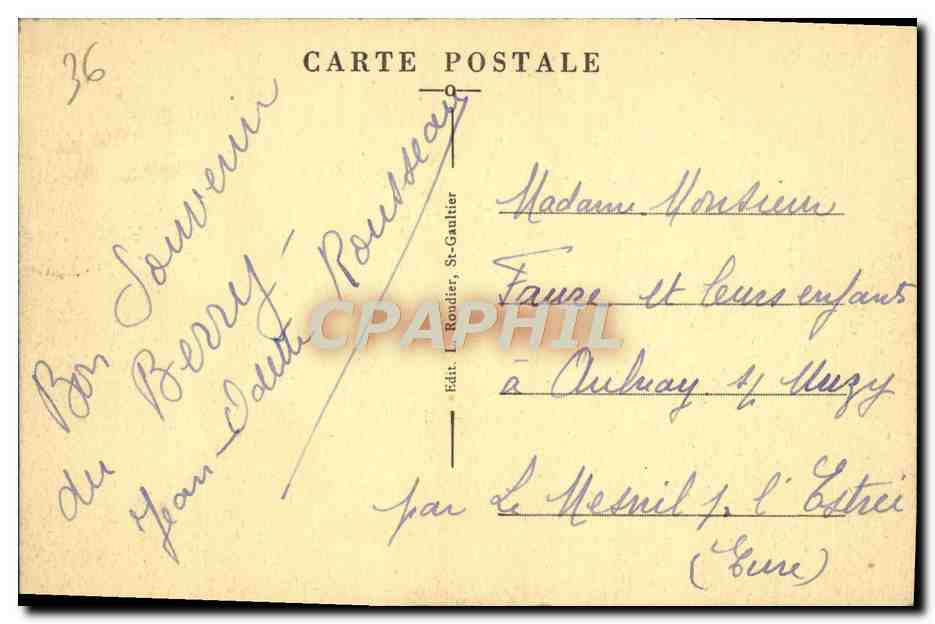 36
CARTE POSTALE
Bon Souvenir
du Berry -
Jean - Odette Rousseau
Edit. L. Roudier, St-Gaultier
Madame Monsieur
Faure et leurs enfants
à Aulnay s/ Muzy
par Le Mesnil p. l' Estrée
(Eure)
CPAPHIL